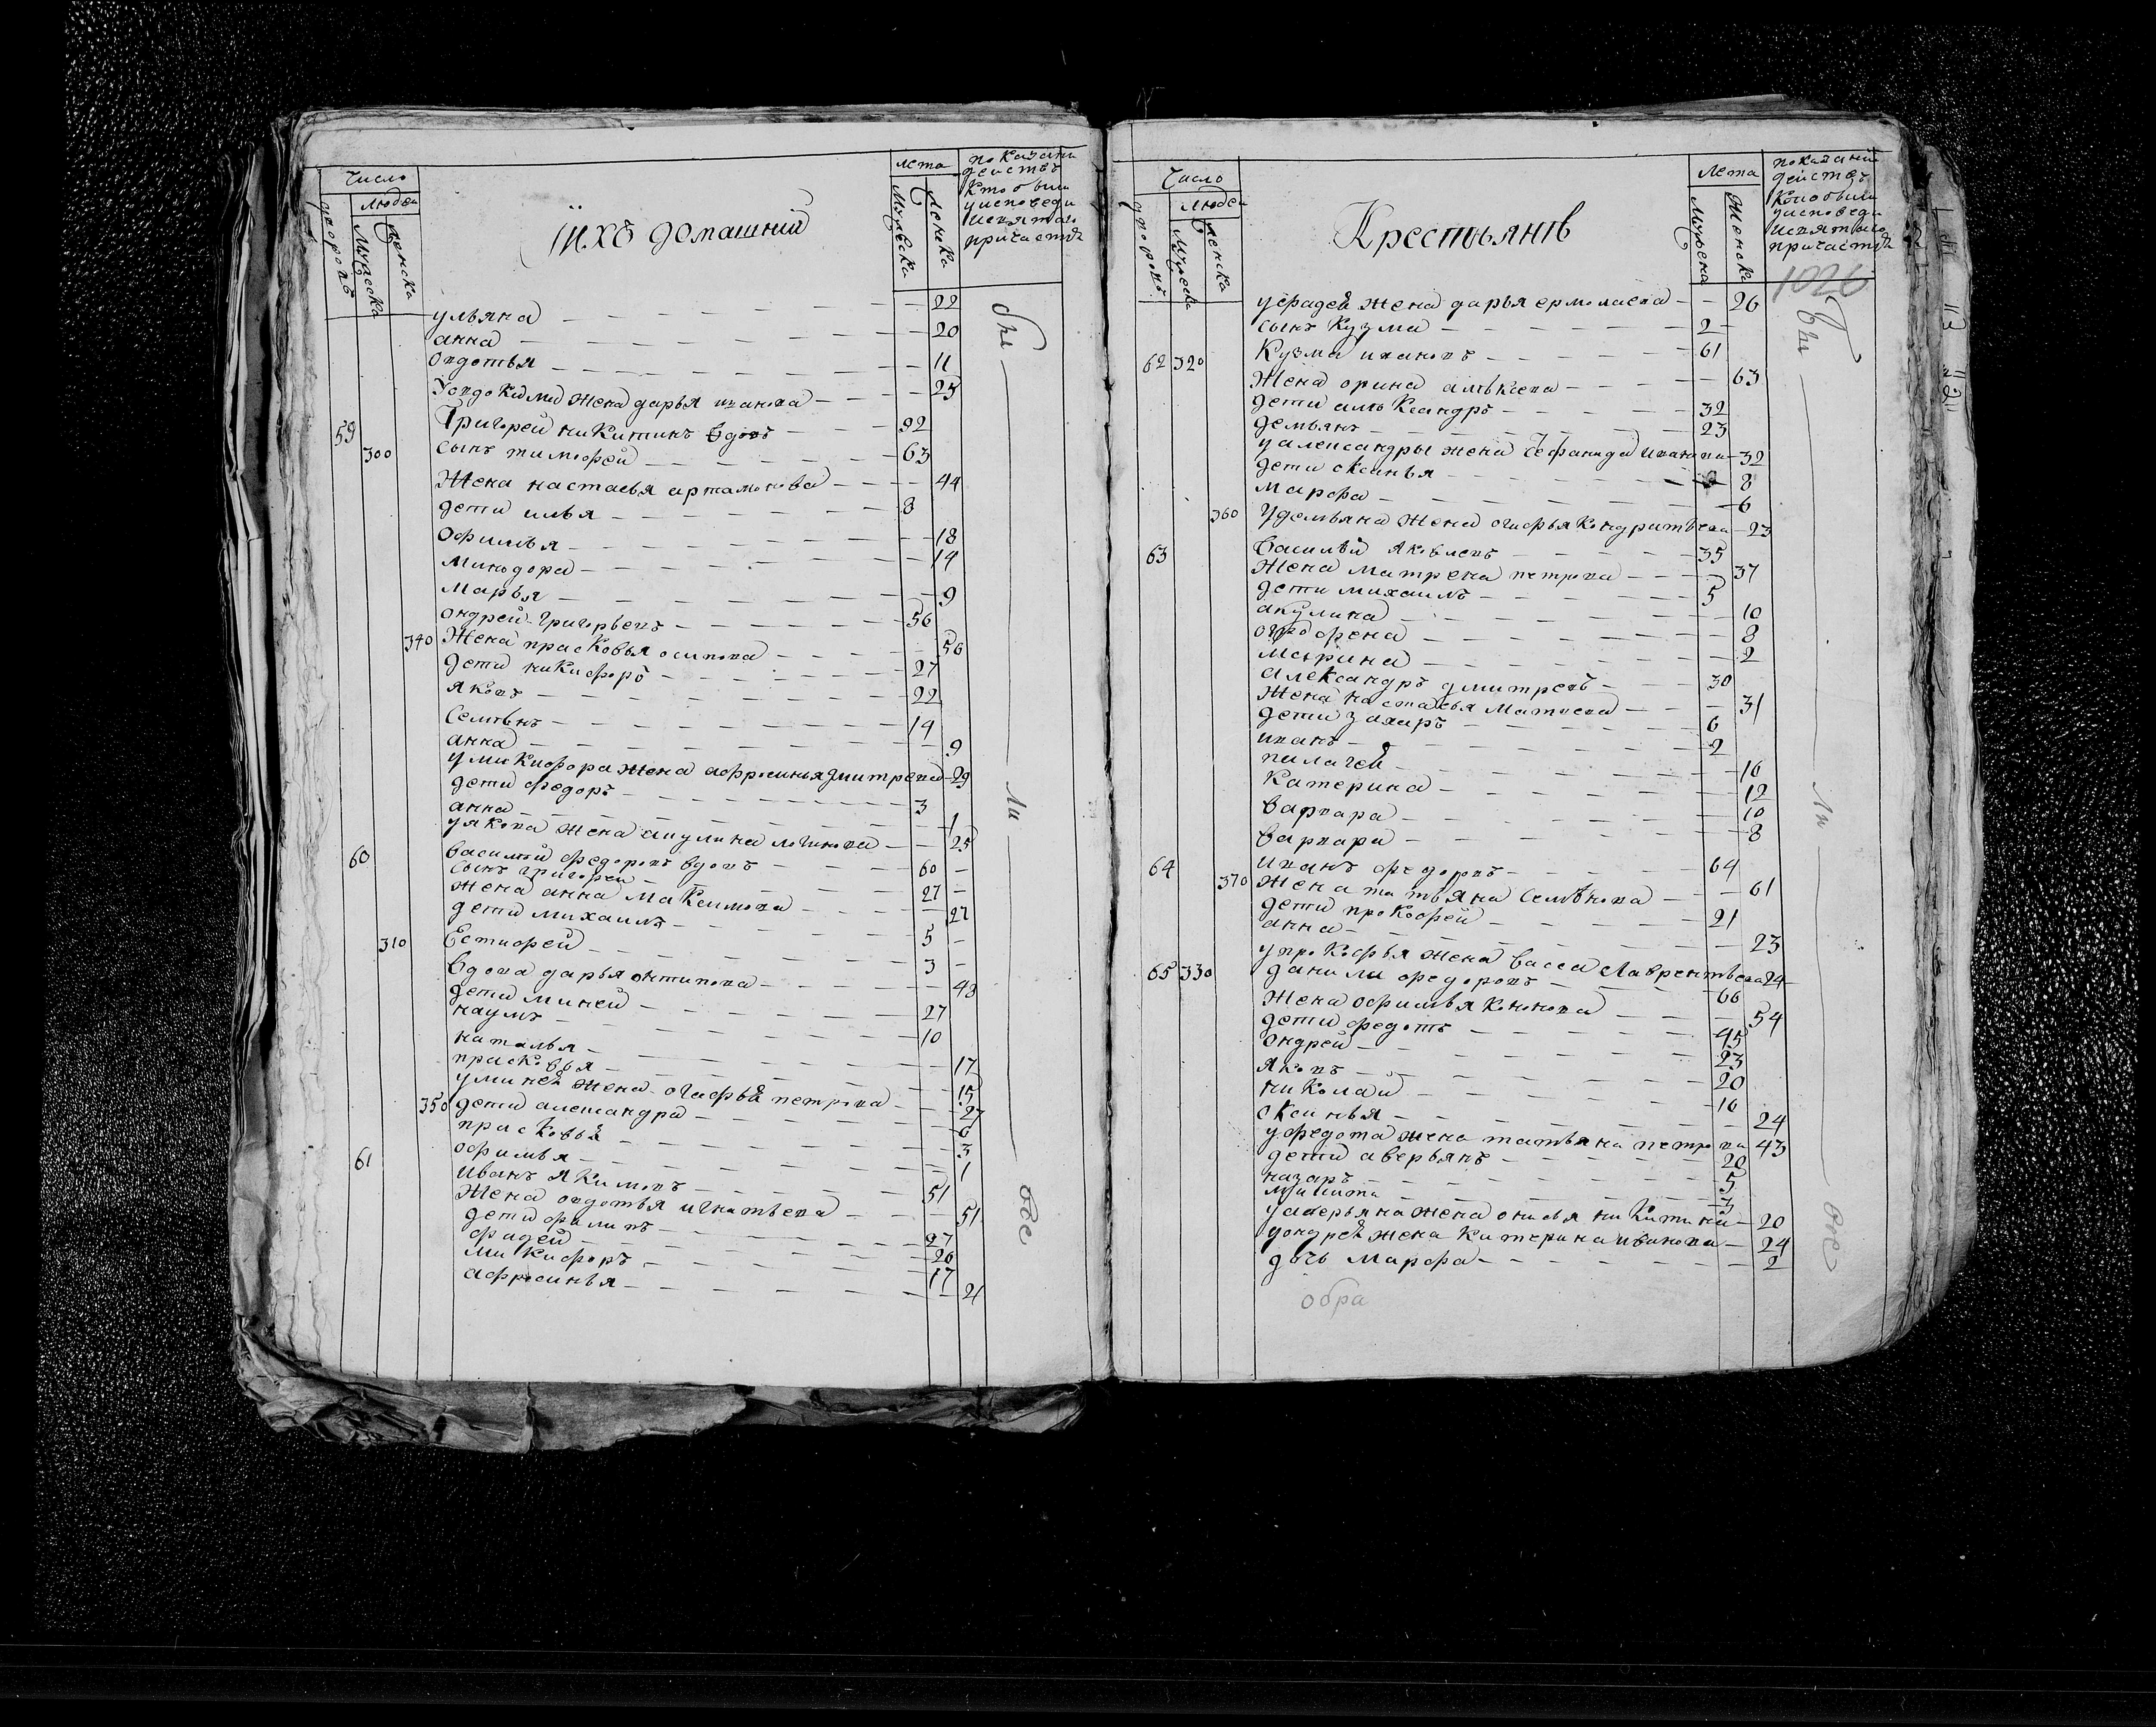 Число
Людей
дворовъ
Мужеска
женска
їихъ домашнии
лета
Мужеска
женска
показании
действъ
Кто были
уисповеди
исвятаго
причастия
ульяна — 22
анна — 20
овдотья — 11
Уевдокима жена дарья иванова — 25
59 Григорей никитинъ вдовъ — 92
300 сынъ тимофей — 63
Жена настасья артамонова — 44
дети илья — 8
Офимья — 18
Минодора — 14
Марья — 9
ондрей григорьевъ — 56
340 Жена прасковья осипова — 56
дети никифоръ — 27
яковъ — 22
Семенъ — 14
анна — 9
уникифора жена афросинья дмитрева — 29
дети федоръ — 3
анна — 1
уякова жена акулина логинова — 25
60 василей федоровъ вдовъ — 60
сынъ григорей — 27
жена анна максимова — 27
дети михаилъ — 5
310 Естифей — 3
вдова дарья онтипова — 48
дети миней — 27
наумъ — 10
наталья — 17
прасковья — 15
уминея жена огафья петрова — 27
350 дети александра — 6
прасковья — 3
офимья — 1
61 иванъ якимовъ — 51
Жена овдотья игнатьева — 51
дети филипъ — 27
фадей — 26
Микифоръ — 17
афросинья — 21
бы
ли
обе
Число
Людей
дворовъ
Мужеска
женска
Крестьянъ
Лета
Мужеска
Женска
показании
действъ
Кто были
уисповеди
исвятаго
причастия
1026
уфадея жена дарья ермолаева — 26
сынъ Кузма — 2
62 320 Кузма ивановъ — 61
Жена орина алексева — 63
дети александръ — 32
демьянъ — 23
уалександры жена Фефанида иванова — 32
дети оксинья — 8
Марфа — 6
360 Удемьяна жена огафья кондратьева — 23
63 Василей яковлевъ — 35
Жена матрена петрова — 37
дети михаилъ — 5
акулина — 10
огрофена — 8
Марина — 2
александръ дмитревъ — 30
Жена настасья матвеева — 31
дети захаръ — 6
иванъ — 2
пилагея — 16
катерина — 12
варвара — 10
варвара — 8
64 иванъ федоровъ — 64
370 Жена татьяна семенова — 61
дети прокофей — 21
анна — 23
упрокофья жена васса лаврентьева 24
65 330 данила федоровъ — 66
Жена офимья кононова — 54
дети федотъ — 45
Ондрей — 23
яковъ — 20
николай — 16
оксинья — 24
уфедота жена татьяна петрова 43
дети аверьянъ — 20
назаръ — 5
никита — 3
уаверьяна жена онисья никитина — 20
уондрея жена катерина иванова — 24
дочь марфа — 2
бы
ли
обе
обра